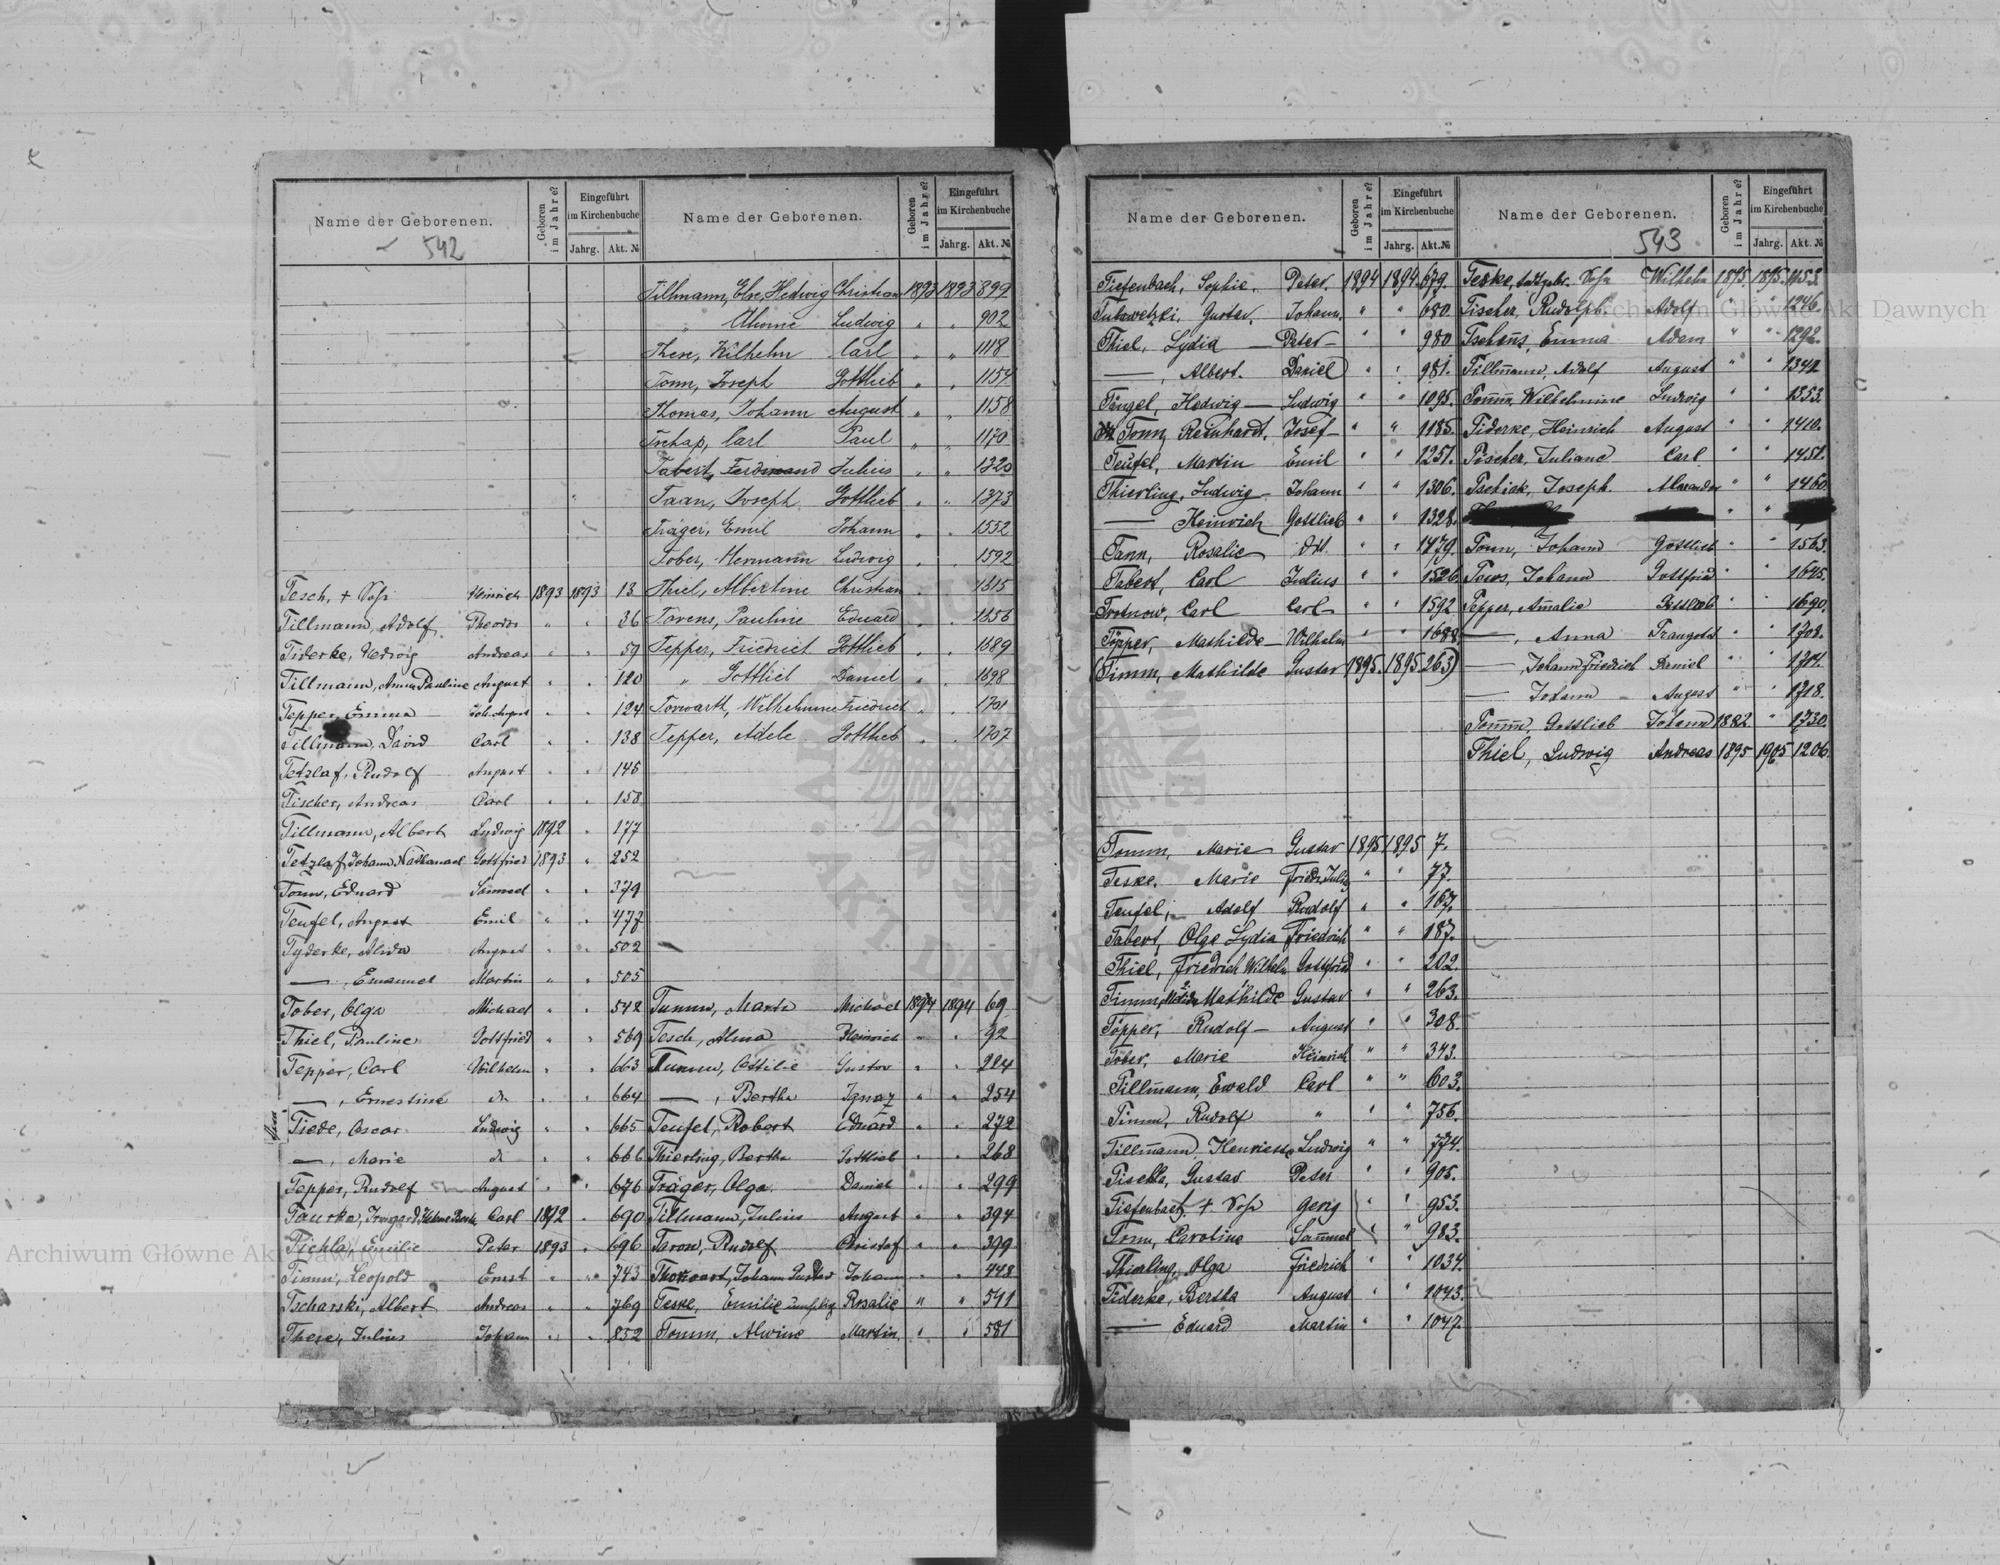 Name der Geborenen. Geboren im Jahre? Eingeführt im Kirchenbuche Jahrg. Akt. №
542
Tesch, + Sohn Heinrich 1893 1893 13
Tillmann, Adolf Theodor " " 36
Tiderke, Hedwig Andreas " " 59
Tillmann, Anna Pauline August " " 120
Tepper, Emma Joh. August " " 124
Tillmann, David Carl " " 138
Tetzlaf, Rudolf August " " 145
Tischer, Andreas Carl " " 158
Tillmann, Albert Ludwig 1892 " 177
Tetzlaf, Johann Nathanael Gottfried 1893 " 252
Tonn, Eduard Samuel " " 379
Teufel, August Emil " " 477
Tyderke, Alida August " " 502
—, Emanuel Martin " " 505
Tober, Olga Michael " " 542
Thiel, Pauline Gottfried " " 569
Tepper, Carl Wilhelm " " 663
—, Ernestine do " " 664
Tiede, Oscar Ludwig " " 665
—, Marie do " " 666
Tepper, Rudolf August " " 676
Carl 1892 " 690
Tichla, Emilie Peter 1893 " 696
Timm, Leopold Ernst " " 743
Tscharski, Albert Andreas " " 769
These, Julius Johann " " 852
Name der Geborenen. Geboren im Jahre? Eingeführt im Kirchenbuche Jahrg. Akt. №
Tillmann, Else Hedwig Christian 1893 1893 899
" Ludwig " " 902
These, Wilhelm Carl " " 1118
Tonn, Joseph Gottlieb " " 1154
Thomas, Johann August " " 1158
Carl Paul " " 1170
Tabert, Ferdinand Julius " " 1320
Taan, Joseph Gottlieb " " 1373
Träger, Emil Johann " " 1552
Tober, Hermann Ludwig " " 1592
Thiel, Albertine Christian " " 1615
Torens, Pauline Eduard " " 1656
Tepper, Friedrich Gottlieb " " 1689
" Gottlieb Daniel " " 1698
Torwarth, Wilhelmine Friedrich " " 1701
Tepper, Adele Gottlieb " " 1707
Tumm, Marta Michael 1894 1894 69
Tesch, Alma Heinrich " " 92
Tumm, Ottilie Gustav " " 224
—, Bertha Ignaz " " 254
Teufel, Robert Eduard " " 272
Thierling, Bertha Gottlieb " " 268
Träger, Olga Daniel " " 299
Tillmann, Julius August " " 394
Taron, Rudolf Christof " " 399
Johann Gustav Johann " " 448
Teske, Emilie Rosalie " " 541
Tomm, Alwine Martin " " 581
Name der Geborenen. Geboren im Jahre? Eingeführt im Kirchenbuche Jahrg. Akt. №
Tiefenbach, Sophie. Peter 1894 1894 679.
Gustav. Johann. " " 680
Thiel, Lydia — Peter — " " 980
—, Albert. Daniel " " 981.
Tänzel, Hedwig — Ludwig " " 1095.
Tonn, Reinhardt. Josef — " " 1185.
Teufel, Martin Emil " " 1251.
Thierling, Ludwig — Johann " " 1306.
— Heinrich Gottlieb " " 1328.
Tann, Rosalie " " 1479.
Tabert, Carl Julius " " 1526
Trotnow, Carl Carl — " " 1592
Töpper, Mathilde — Wilhelm " " 1688
(Timm, Mathilde Gustav 1895. 1895 263)
Tomm, Marie Gustav 1895 1895 7.
Teske. Marie " " 77.
Teufel, Adolf Rudolf " " 167.
Tabert, Olga Lydia Friedrich " " 187.
Thiel, Friedrich Wilhelm Gottfried " " 202.
Timm, Mathilde Gustav " " 263.
Töpper, Rudolf — August " " 308
Tober, Marie Heinrich " " 373.
Tillmann, Ewald Carl " " 603.
Timm, Rudolf " " " 756.
Tillmann, Henriette Ludwig " " 774.
Gustav Peter " " 905.
Tiefenbach, + Sohn Georg " " 953.
Tonn, Caroline Samuel " " 983.
Thierling, Olga Friedrich " " 1034.
Tiderke, Bertha August " " 1043.
— Eduard Martin " " 1047.
Name der Geborenen. Geboren im Jahre? Eingeführt im Kirchenbuche Jahrg. Akt. №
543
Teske, Sohn Wilhelm 1895. 1895. 1153.
Tischer, Rudolph. Adolf " " 1246.
Emma Adam " " 1292.
Tillmann, Adolf August " " 1342
Tomm, Wilhelmine Ludwig " " 1353.
Tiderke, Heinrich August " " 1410.
Tischer, Juliane Carl " " 1451.
Joseph. Alexander " " 1460.
Tonn, Johann Gottlieb " " 1563.
Tews, Johann Gottfried " " 1645.
Tepper, Amalie Gottlieb " " 1690.
—, Anna Traugott " " 1702.
— Johann Friedrich Daniel " " 1704.
— Johann — August " " 1718.
Tomm, Gottlieb Johann 1882 " 1730.
Thiel, Ludwig Andreas 1895 1905 1206.
Archiwum Główne Akt Dawnych
Archiwum Główne Akt Dawnych